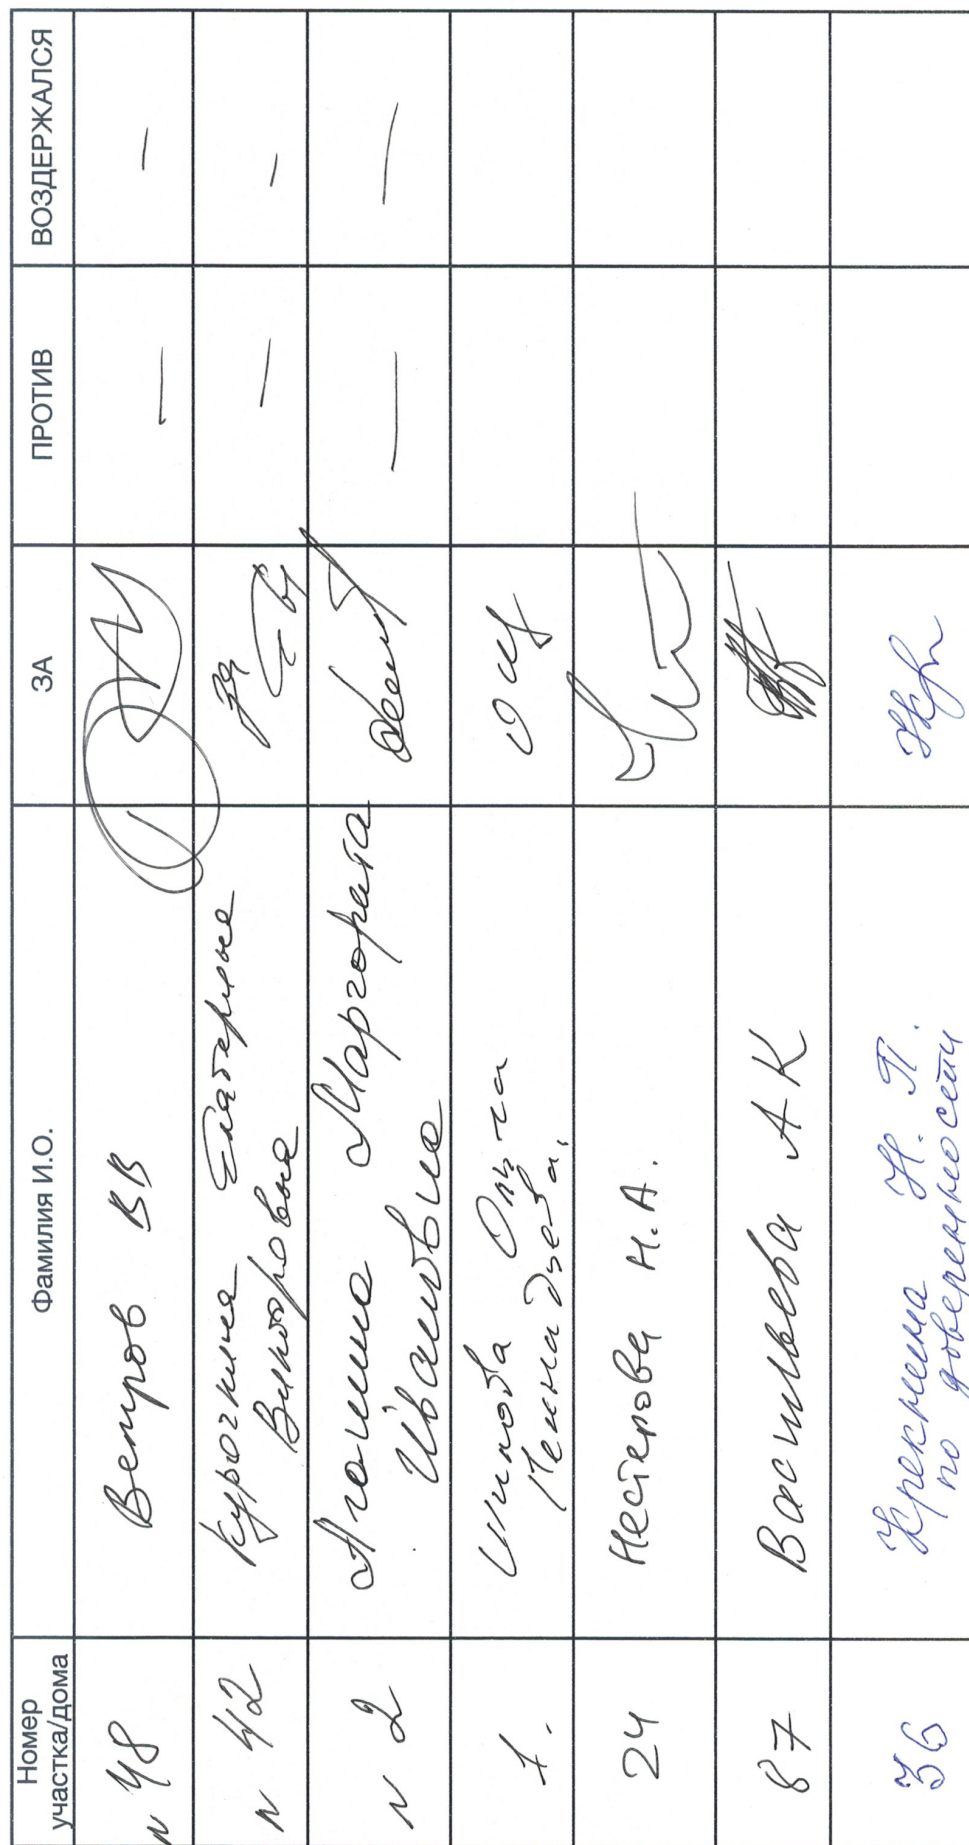 Номер участка/дома Фамилия И.О. ЗА ПРОТИВ ВОЗДЕРЖАЛСЯ
N 48 Ветров ВВ — —
N 42 Курочкина Екатерина — —
Викторовна
N 2 Маргорита — —
Ивановна
Шилова Ольга
Геннадьевна.
24 Нестерова Н.А.
87 Васильева А К
36 Н. П.
по доверенности